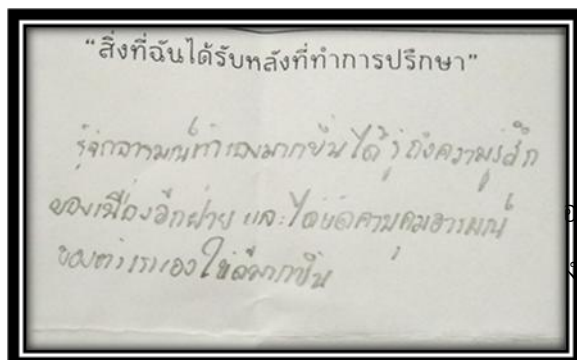 “สิ่งที่ฉันได้รับหลังที่ทำการปรึกษา”
รู้จักอารมณ์ตัวเองมากขึ้น ได้รู้ถึงความรู้สึก
ของเพื่องอีกฝ่าย และได้ควบคุมอารมณ์
ของตัวเราเองให้ดีมากขึ้น